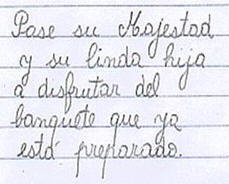 Pase su Majestad
y su linda hija
a disfrutar del
banquete que ya
está preparado.